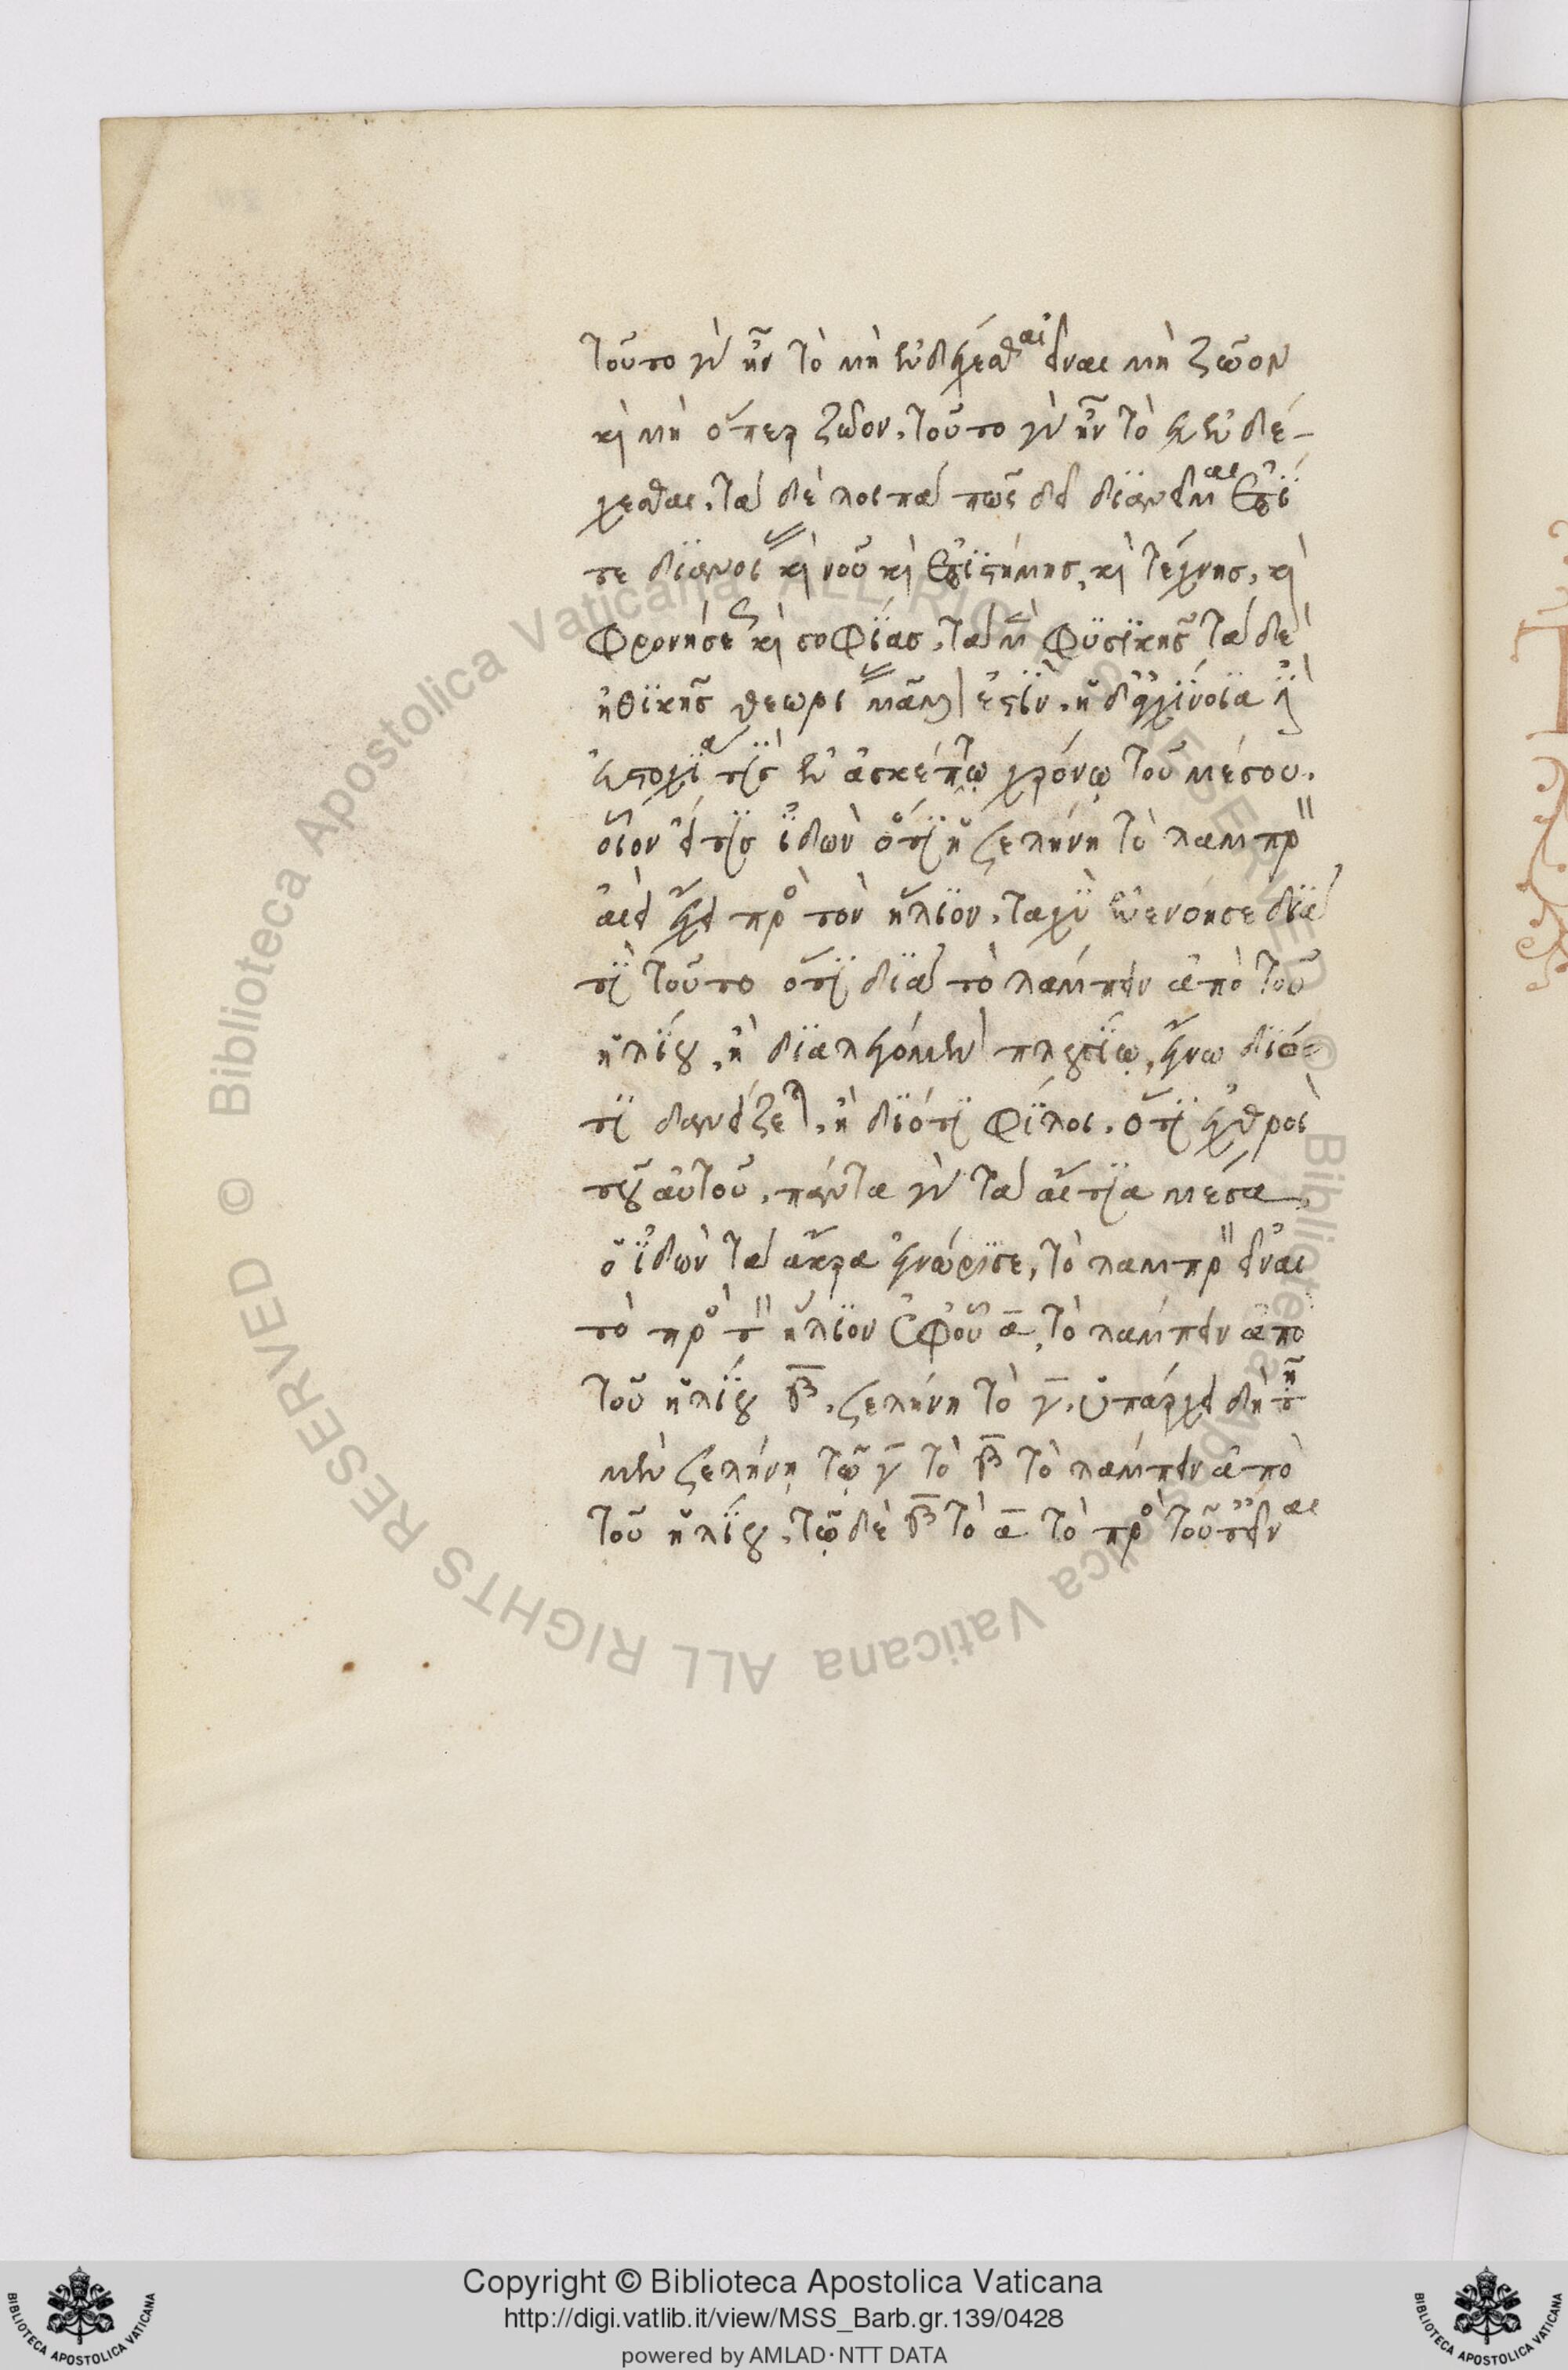 τοῦτο γὰρ ἦν τὸ μὴ ἐνδέχεσθαι εἶναι μὴ ζῶον
καὶ μὴ ὅπερ ζῶον, τοῦτο γὰρ ἦν τὸ ἐκ ἐνδέ-
χεσθαι. τὰ δὲ λοιπὰ πῶς δεῖ διανεῖμαι ἐπί
τε διανοίας καὶ νοῦ καὶ ἐπιστήμης, καὶ τέχνης, καὶ
φρονήσεως καὶ σοφίας, τὰ μὲν φυσικῆς τὰ δὲ
ἠθικῆς θεωρίας μᾶλλον ἐστίν. ἡ δ' ἀγχίνοια ἡ
εὐστοχία τὶς ἐν ἀσκέπτῳ χρόνῳ τοῦ μέσου.
οἷον εἴ τις ἰδὼν ὅτι ἡ σελήνη τὸ λαμπρὸν
ἀεὶ ἔχει πρὸς τὸν ἥλιον, ταχὺ ἐνενόησε διὰ
τί τοῦτο ὅτι διὰ τὸ λάμπειν ἀπὸ τοῦ
ἡλίου, ἢ διαλεγόμενον πλουσίῳ, ἔγνω διό-
τι δανείζεται, ἢ διότι φίλοι, ὅτι ἐχθροὶ
τοῦ αὐτοῦ, πάντα γὰρ τὰ αἴτια μέσα,
ὁ ἰδὼν τὰ ἄκρα ἐγνώρισε, τὸ λαμπρὸν εἶναι
τὸ πρὸς τὸν ἥλιον ἐφ' οὗ α, τὸ λάμπειν ἀπὸ
τοῦ ἡλίου β, σελήνη τὸ γ, ὑπάρχει δὴ τῇ
μὲν σελήνῃ τῷ γ τὸ β τὸ λάμπειν ἀπὸ
τοῦ ἡλίου, τῷ δὲ β τὸ α τὸ πρὸς τοῦτ' εἶναι
Copyright © Biblioteca Apostolica Vaticana
http://digi.vatlib.it/view/MSS_Barb.gr.139/0428
powered by AMLAD·NTT DATA